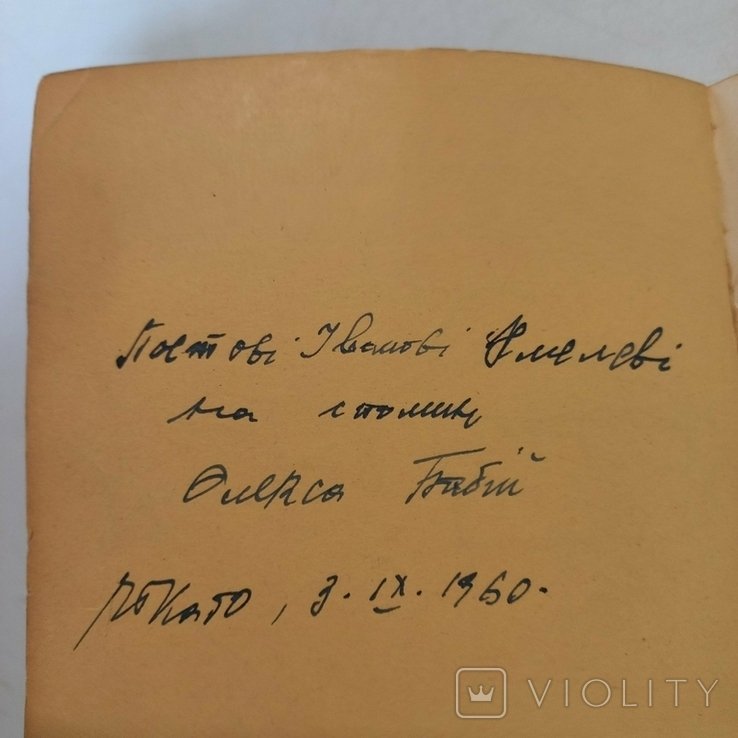 Поетові Іванові Смолеві
на спомин
Олекса Бабій
Чікаґо, 3. IX. 1960.
VIOLITY